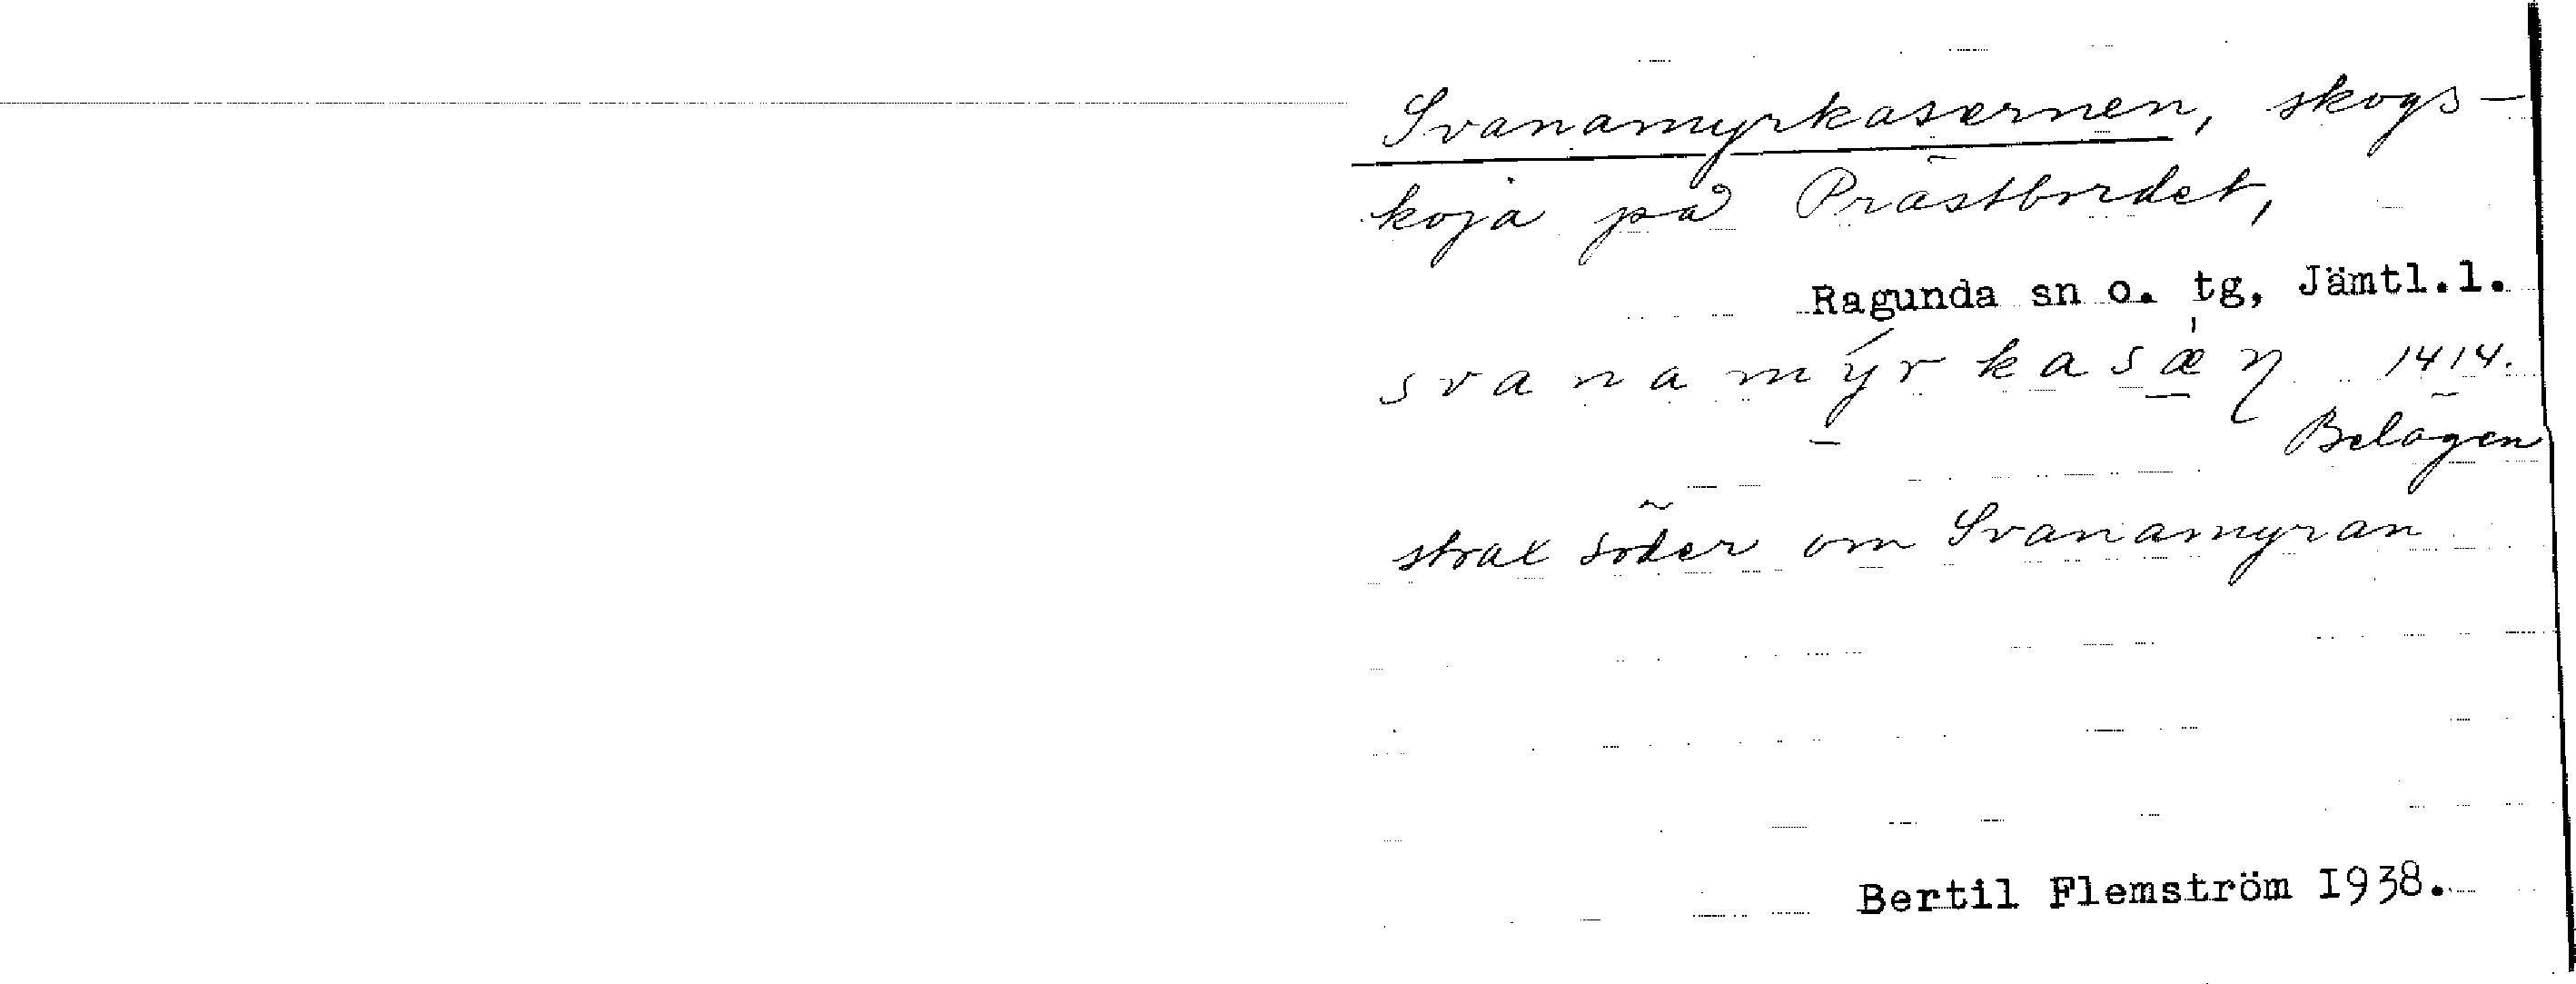 Svanamyrkasernen, skogs-
koja på Prästbordet,
Ragunda sn o. tg, Jämtl.l.
svanamý̱rkasæ̱̍ɳ 1414.
Belägen
strax söder om Svanamyran
Bertil Flemström 1938.